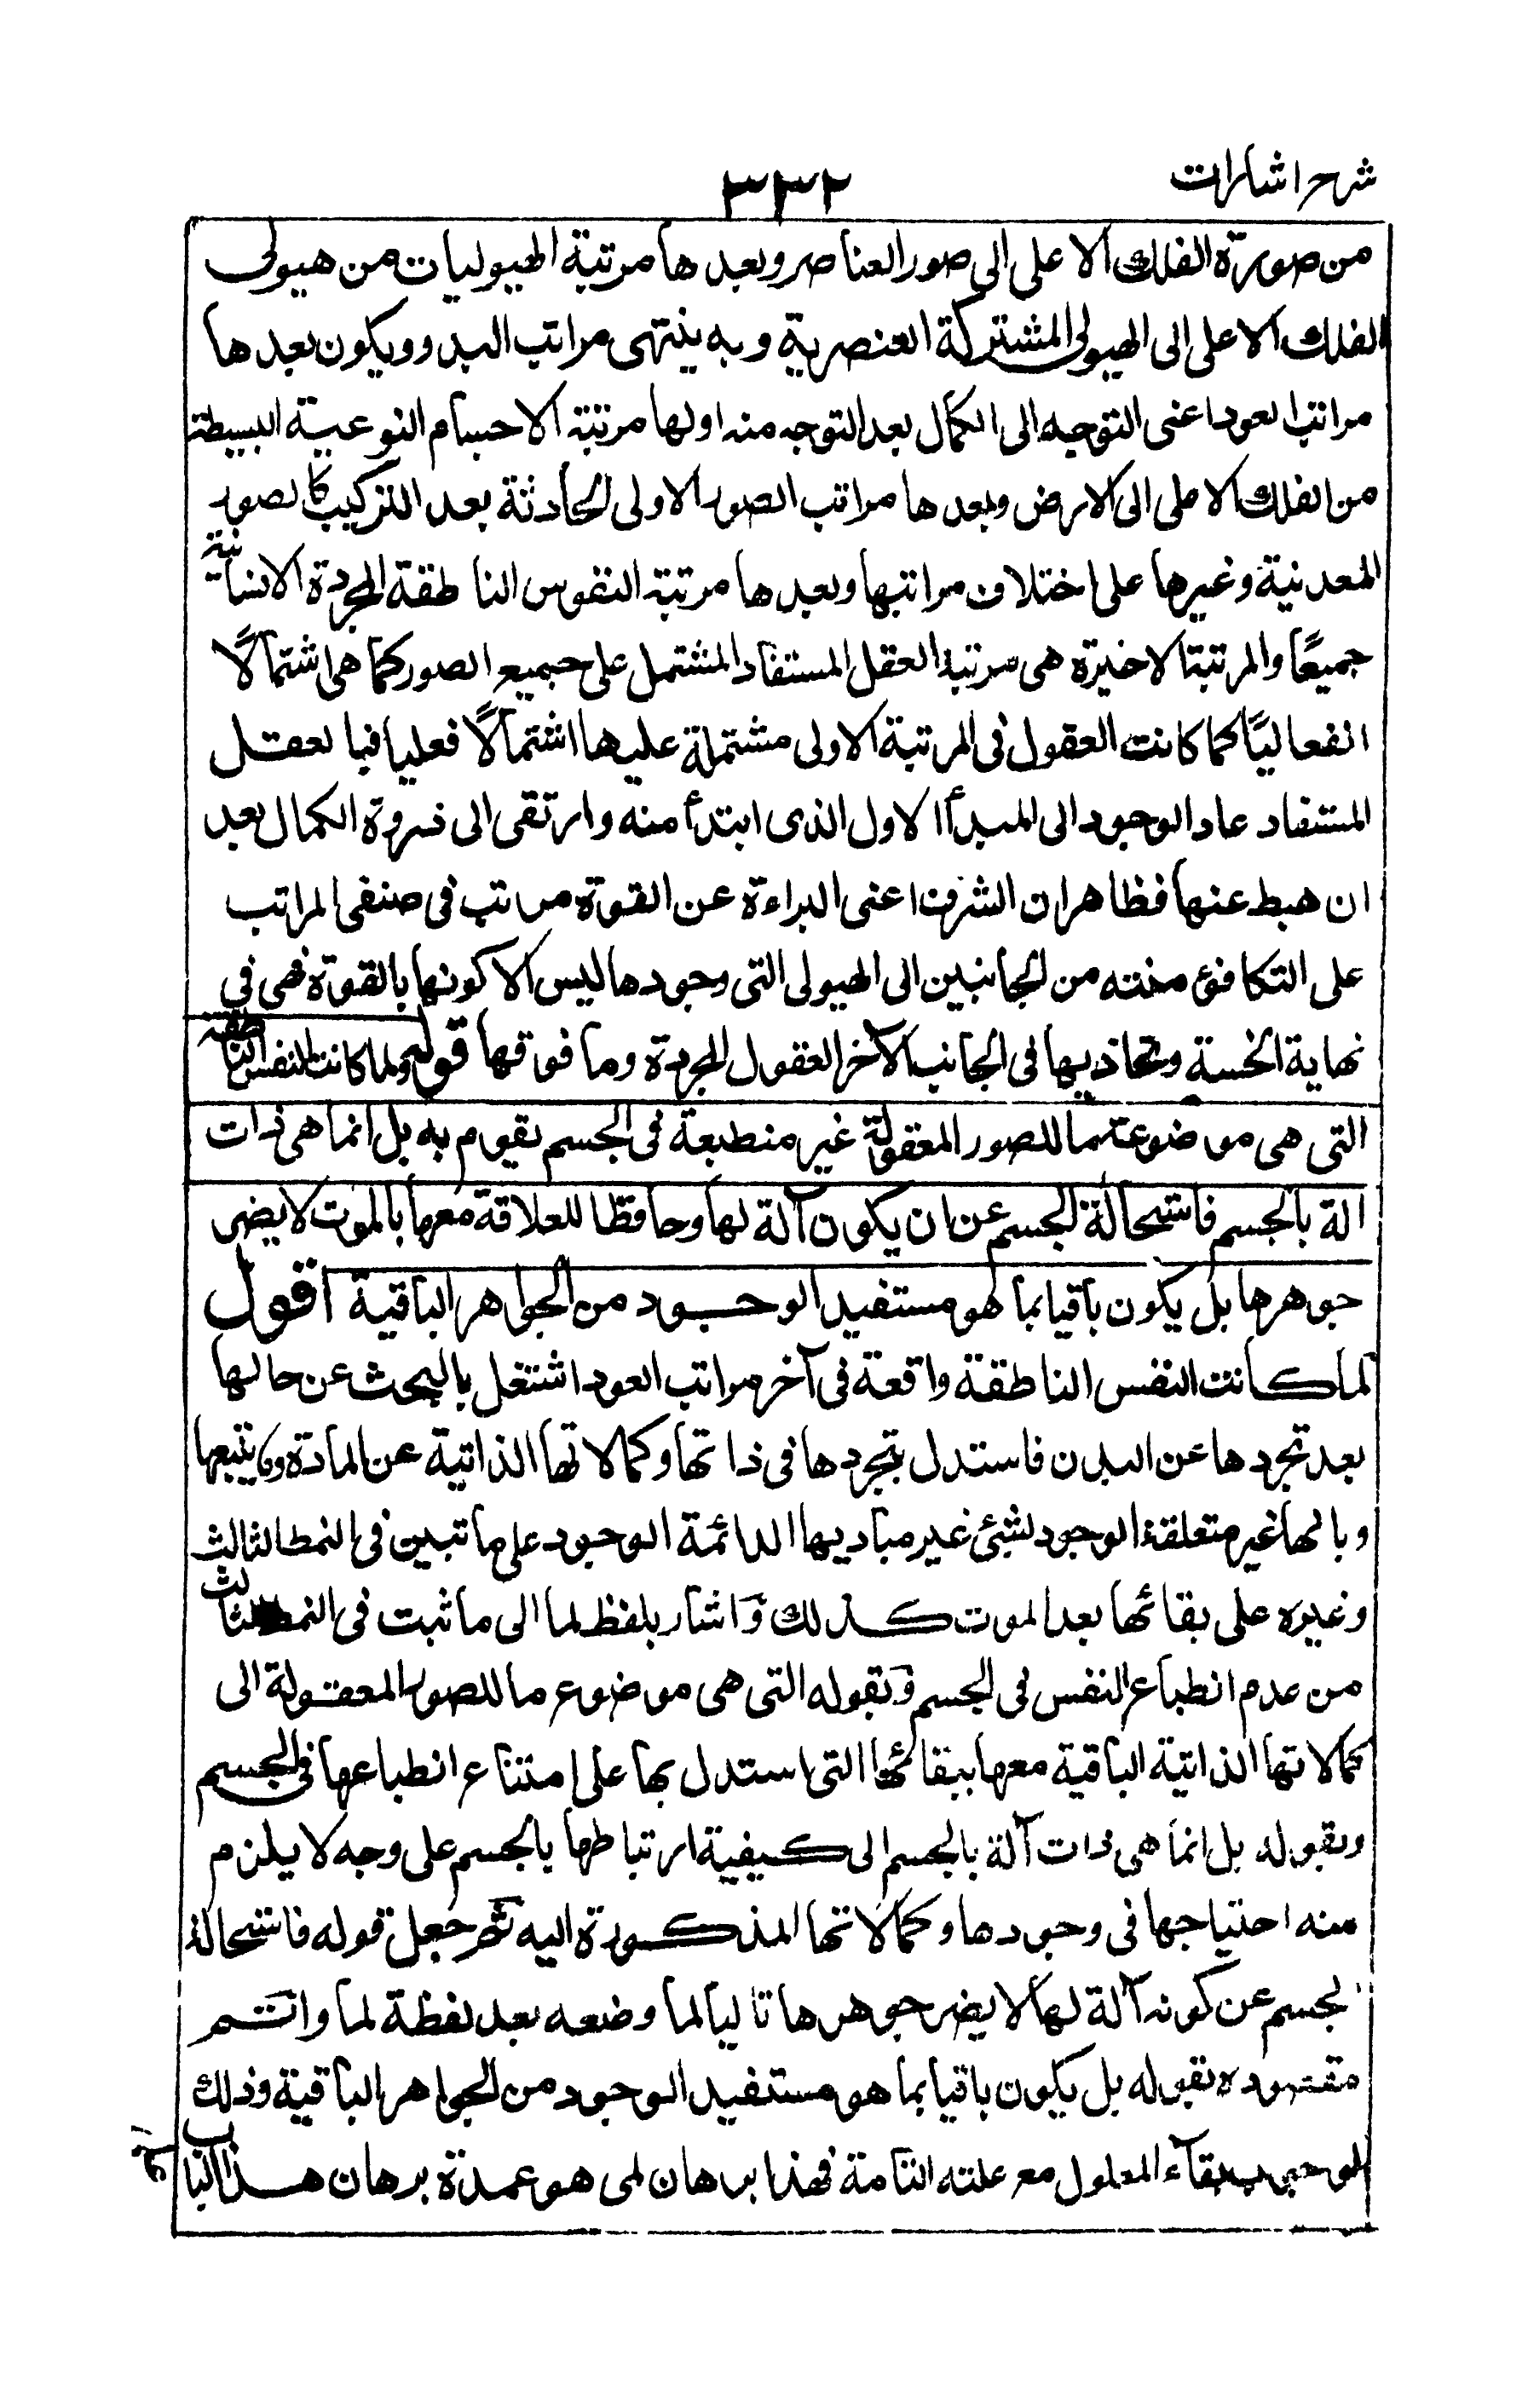 شرح اشارات
٣٣٢
من صورة الفلك الاعلى الى صور العناصر وبعدها مرتبة الهيوليات من هيولى
الفلك الاعلى الى الهيولى المشتركة العنصرية وبه ينتهى مراتب البدو ويكون بعدها
مراتب العود اعنى التوجه الى الكمال بعد التوجه منه اولها مرتبة الاجسام النوعية البسيطة
من الفلك الاعلى الى الارض وبعدها مراتب الصور الاولى الحادثة بعد التركيب كالصور
المعدنية وغيرها على اختلاف مراتبها وبعدها مرتبة النفوس الناطقة المجردة الانسانية
جميعًا والمرتبة الاخيرة هى مرتبة العقل المستفاد المشتمل على جميع الصور كما هى اشتمالًا
انفعاليًا كما كانت العقول فى المرتبة الاولى مشتملة عليها اشتمالًا فعليا فبالعقل
المستفاد عاد الوجود الى المبدأ الاول الذى ابتدأ منه وارتقى الى ذروة الكمال بعد
ان هبط عنها فظاهر ان الشرف اعنى البراءة عن القوة مراتب فى صنفى المراتب
على التكافؤ منته من الجانبين الى الهيولى التى وجودها ليس الا كونها بالقوة فهى فى
نهاية الخسة وتحاذيها فى الجانب الآخر العقول المجردة وما فوقها قوله ولما كانت النفس الناطقة
التى هى موضوعة ما للصور المعقولة غير منطبعة فى الجسم يقوم به بل انما هى ذات
الة بالجسم فاستحالة الجسم عن ان يكون آلة لها وحافظا للعلاقة معها بالموت لا يضر
جوهرها بل يكون باقيا بما هو مستفيد الوجود من الجواهر الباقية اقول
لما كانت النفس الناطقة واقعة فى آخر مراتب العود اشتغل بالبحث عن حالها
بعد تجردها عن البدن فاستدل بتجردها فى ذاتها وكمالاتها الذاتية عن المادة وما يتبعها
وبانها غير متعلقة الوجود بشئ غير مباديها الدائمة الوجود على ما تبين فى النمط الثالث
وغيره على بقائها بعد الموت كذلك واشار بلفظ لما الى ما ثبت فى النمط الثالث
من عدم انطباع النفس فى الجسم وبقوله التى هى موضوع ما للصور المعقولة الى
كمالاتها الذاتية الباقية معها ببقائها التى استدل بها على امتناع انطباعها فى الجسم
وبقوله بل انما هى ذات آلة بالجسم الى كيفية ارتباطها بالجسم على وجه لا يلزم
منه احتياجها فى وجودها وكمالاتها المذكورة اليه ثم جعل قوله فاستحالة
الجسم عن كونه آلة لها لا يضر جوهرها تاليا لما وضعه بعد لفظة لما واتم
مقصوده بقوله بل يكون باقيا بما هو مستفيد الوجود من الجواهر الباقية وذلك
لوجوب بقآء المعلول مع علته التامة فهذا برهان لمى هو عمدة برهان هذا الباب